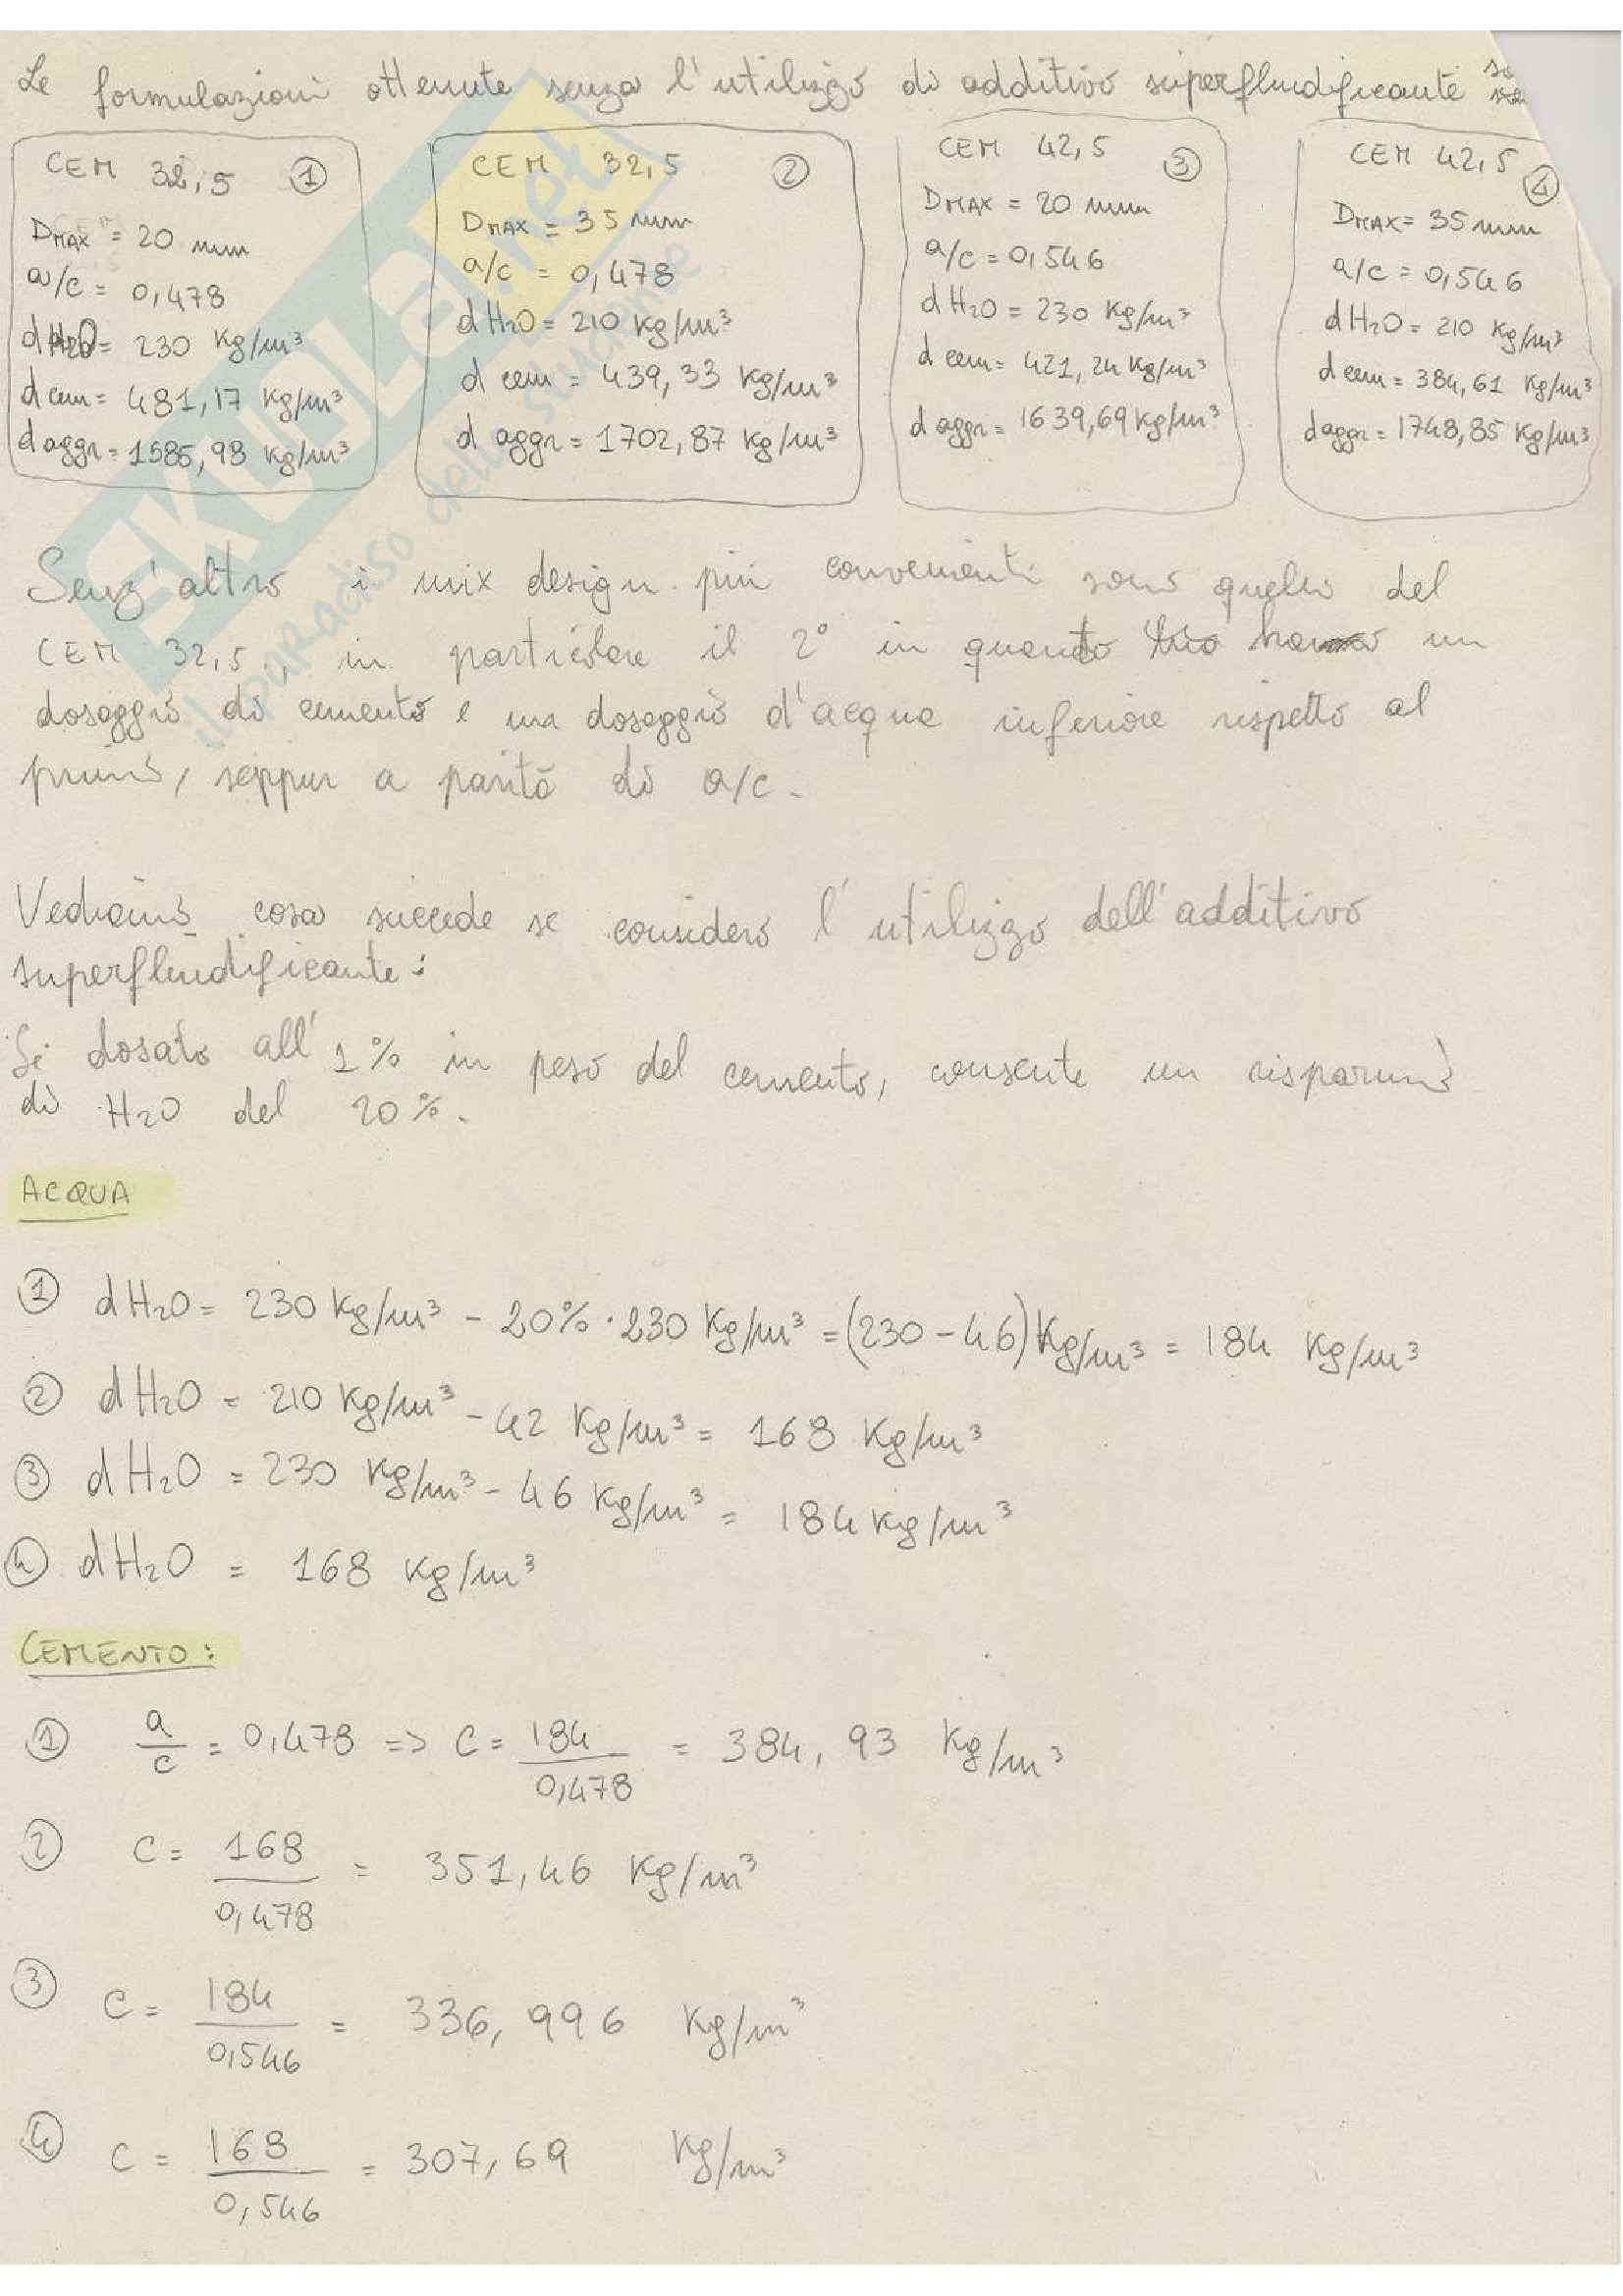 Le formulazioni ottenute senza l'utilizzo di additivo superfluidificante
CEM 32,5 ①
DMAX = 20 mm
a/c = 0,478
dH₂O = 230 Kg/m³
d cem = 481,17 Kg/m³
d aggr = 1585,98 Kg/m³
CEM 32,5 ②
DMAX = 35 mm
a/c = 0,478
dH₂O = 210 Kg/m³
d cem = 439,33 Kg/m³
d aggr = 1702,87 Kg/m³
CEM 42,5 ③
DMAX = 20 mm
a/c = 0,546
dH₂O = 230 Kg/m³
d cem = 421,24 Kg/m³
d aggr = 1639,69 Kg/m³
CEM 42,5 ④
DMAX = 35 mm
a/c = 0,546
dH₂O = 210 Kg/m³
d cem = 384,61 Kg/m³
d aggr = 1748,85 Kg/m³
SKUOLA.net
il paradiso dello studente
Senz'altro i mix design più convenienti sono quello del
CEM 32,5, in particolare il 2° in quanto un
dosaggio di cemento e un dosaggio d'acqua inferiore rispetto al
primo, seppur a parità di a/c.
Vediamo cosa succede se considero l'utilizzo dell'additivo
superfluidificante:
Se dosato all'1% in peso del cemento, consente un risparmio
di H₂O del 20%.
ACQUA
① dH₂O = 230 Kg/m³ - 20% · 230 Kg/m³ = (230 - 46) Kg/m³ = 184 Kg/m³
② dH₂O = 210 Kg/m³ - 42 Kg/m³ = 168 Kg/m³
③ dH₂O = 230 Kg/m³ - 46 Kg/m³ = 184 Kg/m³
④ dH₂O = 168 Kg/m³
CEMENTO:
① a/c = 0,478 => C = 184/0,478 = 384,93 Kg/m³
② C = 168/0,478 = 351,46 Kg/m³
③ C = 184/0,546 = 336,996 Kg/m³
④ C = 168/0,546 = 307,69 Kg/m³